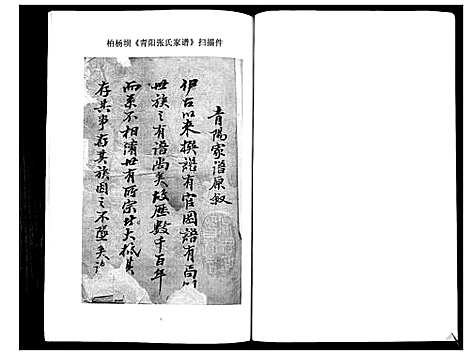 柏杨坝《青阳张氏家谱》扫描件
青陽家譜原叙
伊古以来撰譜有官國譜有
世族之有譜尚矣故歷數千百年
而系不相淆世有所宗
存其事存其族因之不墜矣